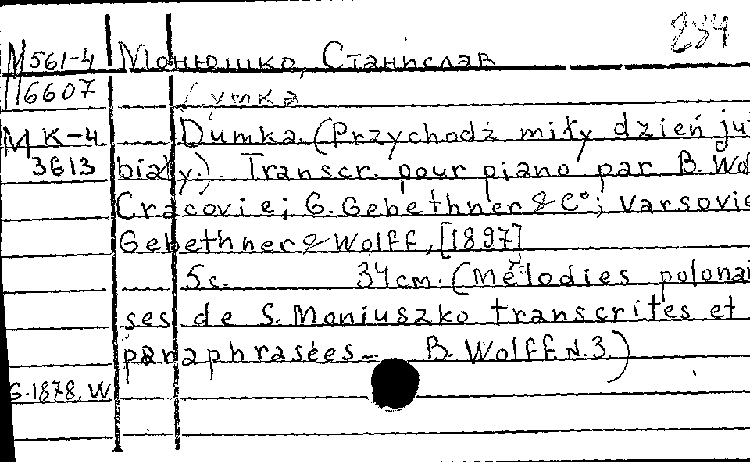 234
М561-4 Монюшко, Станислав
П6607 Думка
MK-4 Dumka. (Przychodź miły dzień ju
3613 biały.) Transcr. pour piano par B. Wol
Cracovie; G. Gebethner & C°; Varsovie
Gebethner & Wolff, [1897]
5c. 34cm. (Mélodies polonai
ses de S. Moniuszko transcrites et
paraphrasées - B. Wolff. N. 3.)
G. 1878. W